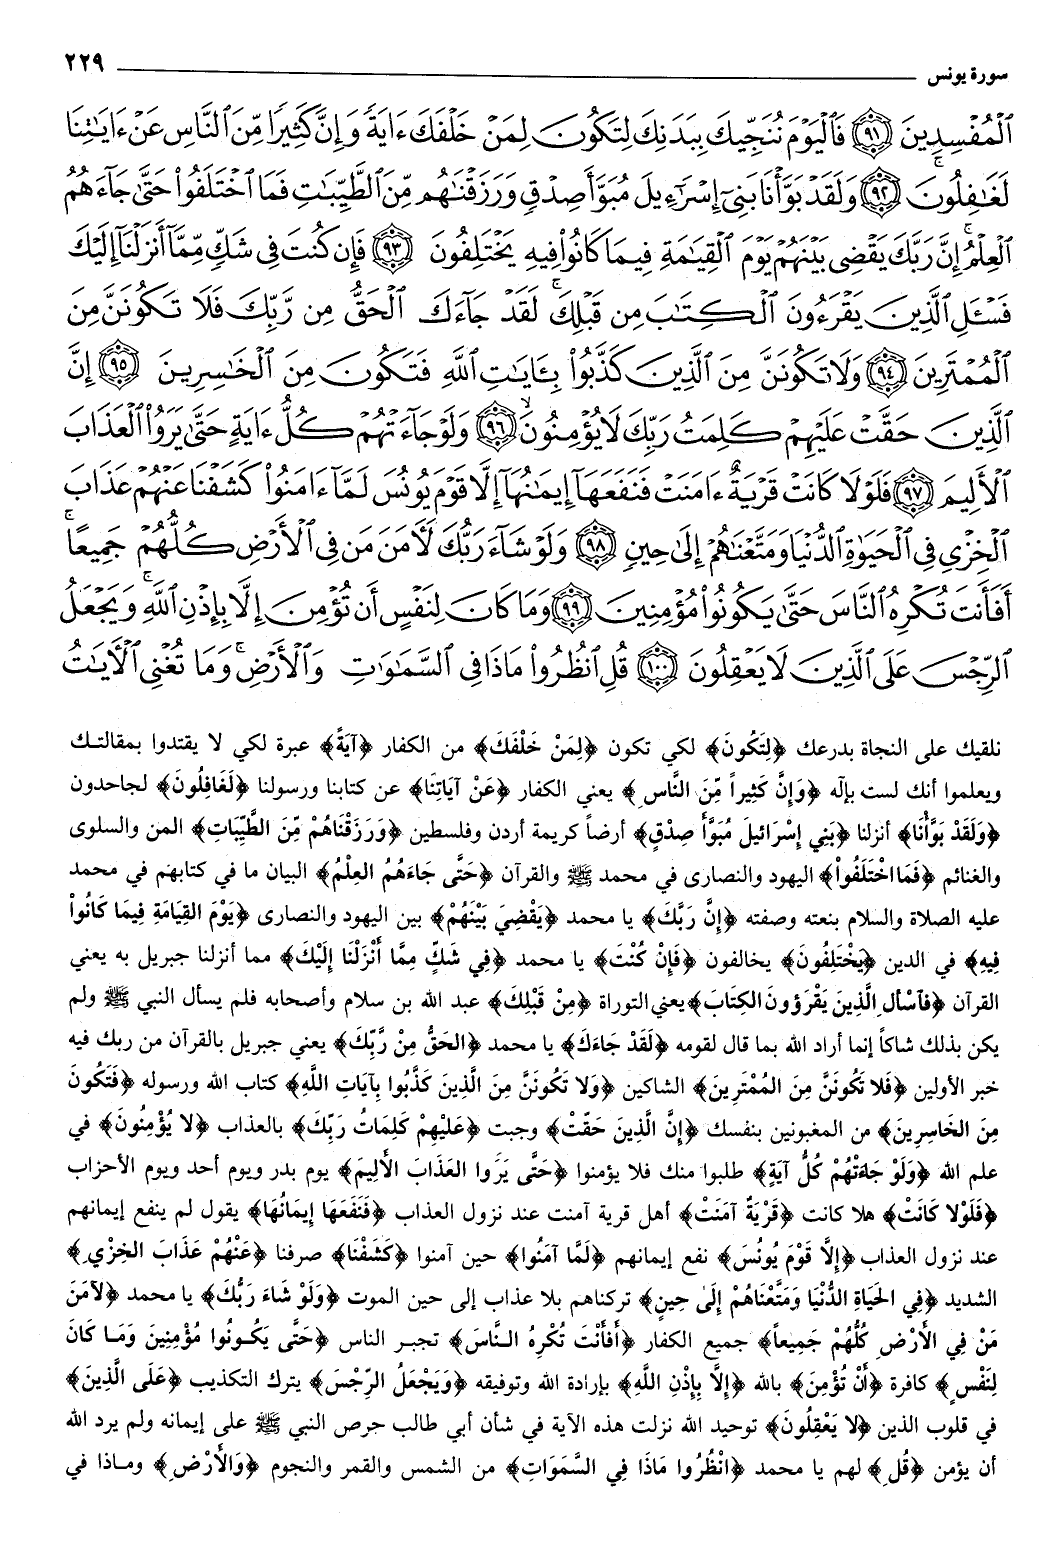 سورة يونس ٢٢٩
ٱلْمُفْسِدِينَ ٩١ فَٱلْيَوْمَ نُنَجِّيكَ بِبَدَنِكَ لِتَكُونَ لِمَنْ خَلْفَكَ ءَايَةً وَإِنَّ كَثِيرًا مِّنَ ٱلنَّاسِ عَنْ ءَايَٰتِنَا
لَغَٰفِلُونَ ٩٢ وَلَقَدْ بَوَّأْنَا بَنِىٓ إِسْرَٰٓءِيلَ مُبَوَّأَ صِدْقٍ وَرَزَقْنَٰهُم مِّنَ ٱلطَّيِّبَٰتِ فَمَا ٱخْتَلَفُوا۟ حَتَّىٰ جَآءَهُمُ
ٱلْعِلْمُ ۚ إِنَّ رَبَّكَ يَقْضِى بَيْنَهُمْ يَوْمَ ٱلْقِيَٰمَةِ فِيمَا كَانُوا۟ فِيهِ يَخْتَلِفُونَ ٩٣ فَإِن كُنتَ فِى شَكٍّ مِّمَّآ أَنزَلْنَآ إِلَيْكَ
فَسْـَٔلِ ٱلَّذِينَ يَقْرَءُونَ ٱلْكِتَٰبَ مِن قَبْلِكَ ۚ لَقَدْ جَآءَكَ ٱلْحَقُّ مِن رَّبِّكَ فَلَا تَكُونَنَّ مِنَ
ٱلْمُمْتَرِينَ ٩٤ وَلَا تَكُونَنَّ مِنَ ٱلَّذِينَ كَذَّبُوا۟ بِـَٔايَٰتِ ٱللَّهِ فَتَكُونَ مِنَ ٱلْخَٰسِرِينَ ٩٥ إِنَّ
ٱلَّذِينَ حَقَّتْ عَلَيْهِمْ كَلِمَتُ رَبِّكَ لَا يُؤْمِنُونَ ۙ ٩٦ وَلَوْ جَآءَتْهُمْ كُلُّ ءَايَةٍ حَتَّىٰ يَرَوُا۟ ٱلْعَذَابَ
ٱلْأَلِيمَ ٩٧ فَلَوْلَا كَانَتْ قَرْيَةٌ ءَامَنَتْ فَنَفَعَهَآ إِيمَٰنُهَآ إِلَّا قَوْمَ يُونُسَ لَمَّآ ءَامَنُوا۟ كَشَفْنَا عَنْهُمْ عَذَابَ
ٱلْخِزْىِ فِى ٱلْحَيَوٰةِ ٱلدُّنْيَا وَمَتَّعْنَٰهُمْ إِلَىٰ حِينٍ ٩٨ وَلَوْ شَآءَ رَبُّكَ لَـَٔامَنَ مَن فِى ٱلْأَرْضِ كُلُّهُمْ جَمِيعًا ۚ
أَفَأَنتَ تُكْرِهُ ٱلنَّاسَ حَتَّىٰ يَكُونُوا۟ مُؤْمِنِينَ ٩٩ وَمَا كَانَ لِنَفْسٍ أَن تُؤْمِنَ إِلَّا بِإِذْنِ ٱللَّهِ ۚ وَيَجْعَلُ
ٱلرِّجْسَ عَلَى ٱلَّذِينَ لَا يَعْقِلُونَ ١٠٠ قُلِ ٱنظُرُوا۟ مَاذَا فِى ٱلسَّمَٰوَٰتِ وَٱلْأَرْضِ ۚ وَمَا تُغْنِى ٱلْءَايَٰتُ
نلقيك على النجاة بدرعك ﴿لِتَكُونَ﴾ لكي تكون ﴿لِمَنْ خَلْفَكَ﴾ من الكفار ﴿آيَةً﴾ عبرة لكي لا يقتدوا بمقالتك
ويعلموا أنك لست بإله ﴿وَإِنَّ كَثِيراً مِّنَ النَّاسِ﴾ يعني الكفار ﴿عَنْ آيَاتِنَا﴾ عن كتابنا ورسولنا ﴿لَغَافِلُونَ﴾ لجاحدون
﴿وَلَقَدْ بَوَّأْنَا﴾ أنزلنا ﴿بَنِي إِسْرَائيلَ مُبَوَّأَ صِدْقٍ﴾ أرضاً كريمة أردن وفلسطين ﴿وَرَزَقْنَاهُمْ مِّنَ الطَّيِّبَاتِ﴾ المن والسلوى
والغنائم ﴿فَمَا اخْتَلَفُواْ﴾ اليهود والنصارى في محمد ﷺ والقرآن ﴿حَتَّى جَاءَهُمُ العِلْمُ﴾ البيان ما في كتابهم في محمد
عليه الصلاة والسلام بنعته وصفته ﴿إِنَّ رَبَّكَ﴾ يا محمد ﴿يَقْضِيَ بَيْنَهُمْ﴾ بين اليهود والنصارى ﴿يَوْمَ القِيَامَةِ فِيمَا كَانُواْ
فِيهِ﴾ في الدين ﴿يَخْتَلِفُونَ﴾ يخالفون ﴿فَإِنْ كُنْتَ﴾ يا محمد ﴿فِي شَكٍّ مِمَّا أَنْزَلْنَا إِلَيْكَ﴾ مما أنزلنا جبريل به يعني
القرآن ﴿فَاسْأَلِ الَّذِينَ يَقْرَؤُونَ الكِتَابَ﴾ يعني التوراة ﴿مِنْ قَبْلِكَ﴾ عبد الله بن سلام وأصحابه فلم يسأل النبي ﷺ ولم
يكن بذلك شاكاً إنما أراد الله بما قال لقومه ﴿لَقَدْ جَاءَكَ﴾ يا محمد ﴿الحَقُّ مِنْ رَّبِّكَ﴾ يعني جبريل بالقرآن من ربك فيه
خبر الأولين ﴿فَلا تَكُونَنَّ مِنَ المُمْتَرِينَ﴾ الشاكين ﴿وَلا تَكُونَنَّ مِنَ الَّذِينَ كَذَّبُوا بِآيَاتِ اللَّهِ﴾ كتاب الله ورسوله ﴿فَتَكُونَ
مِنَ الخَاسِرِينَ﴾ من المغبونين بنفسك ﴿إِنَّ الَّذِينَ حَقَّتْ﴾ وجبت ﴿عَلَيْهِمْ كَلِمَاتُ رَبِّكَ﴾ بالعذاب ﴿لا يُؤْمِنُونَ﴾ في
علم الله ﴿وَلَوْ جَاءَتْهُمْ كُلُّ آيَةٍ﴾ طلبوا منك فلا يؤمنوا ﴿حَتَّى يَرَوا العَذَابَ الأَلِيمَ﴾ يوم بدر ويوم أحد ويوم الأحزاب
﴿فَلَوْلا كَانَتْ﴾ هلا كانت ﴿قَرْيَةٌ آمَنَتْ﴾ أهل قرية آمنت عند نزول العذاب ﴿فَنَفَعَهَا إِيمَانُهَا﴾ يقول لم ينفع إيمانهم
عند نزول العذاب ﴿إِلَّا قَوْمَ يُونُسَ﴾ نفع إيمانهم ﴿لَمَّا آمَنُوا﴾ حين آمنوا ﴿كَشَفْنَا﴾ صرفنا ﴿عَنْهُمْ عَذَابَ الخِزْيِ﴾
الشديد ﴿فِي الحَيَاةِ الدُّنْيَا وَمَتَّعْنَاهُمْ إِلَىٰ حِينٍ﴾ تركناهم بلا عذاب إلى حين الموت ﴿وَلَوْ شَاءَ رَبُّكَ﴾ يا محمد ﴿لآمَنَ
مَنْ فِي الأَرْضِ كُلُّهُمْ جَمِيعاً﴾ جميع الكفار ﴿أَفَأَنْتَ تُكْرِهُ النَّاسَ﴾ تجبر الناس ﴿حَتَّى يَكُونُوا مُؤْمِنِينَ وَمَا كَانَ
لِنَفْسٍ﴾ كافرة ﴿أَنْ تُؤْمِنَ﴾ بالله ﴿إِلَّا بِإِذْنِ اللَّهِ﴾ بإرادة الله وتوفيقه ﴿وَيَجْعَلُ الرِّجْسَ﴾ يترك التكذيب ﴿عَلَى الَّذِينَ﴾
في قلوب الذين ﴿لا يَعْقِلُونَ﴾ توحيد الله نزلت هذه الآية في شأن أبي طالب حرص النبي ﷺ على إيمانه ولم يرد الله
أن يؤمن ﴿قُلِ﴾ لهم يا محمد ﴿انْظُرُوا مَاذَا فِي السَّمَوَاتِ﴾ من الشمس والقمر والنجوم ﴿وَالأَرْضِ﴾ وماذا في